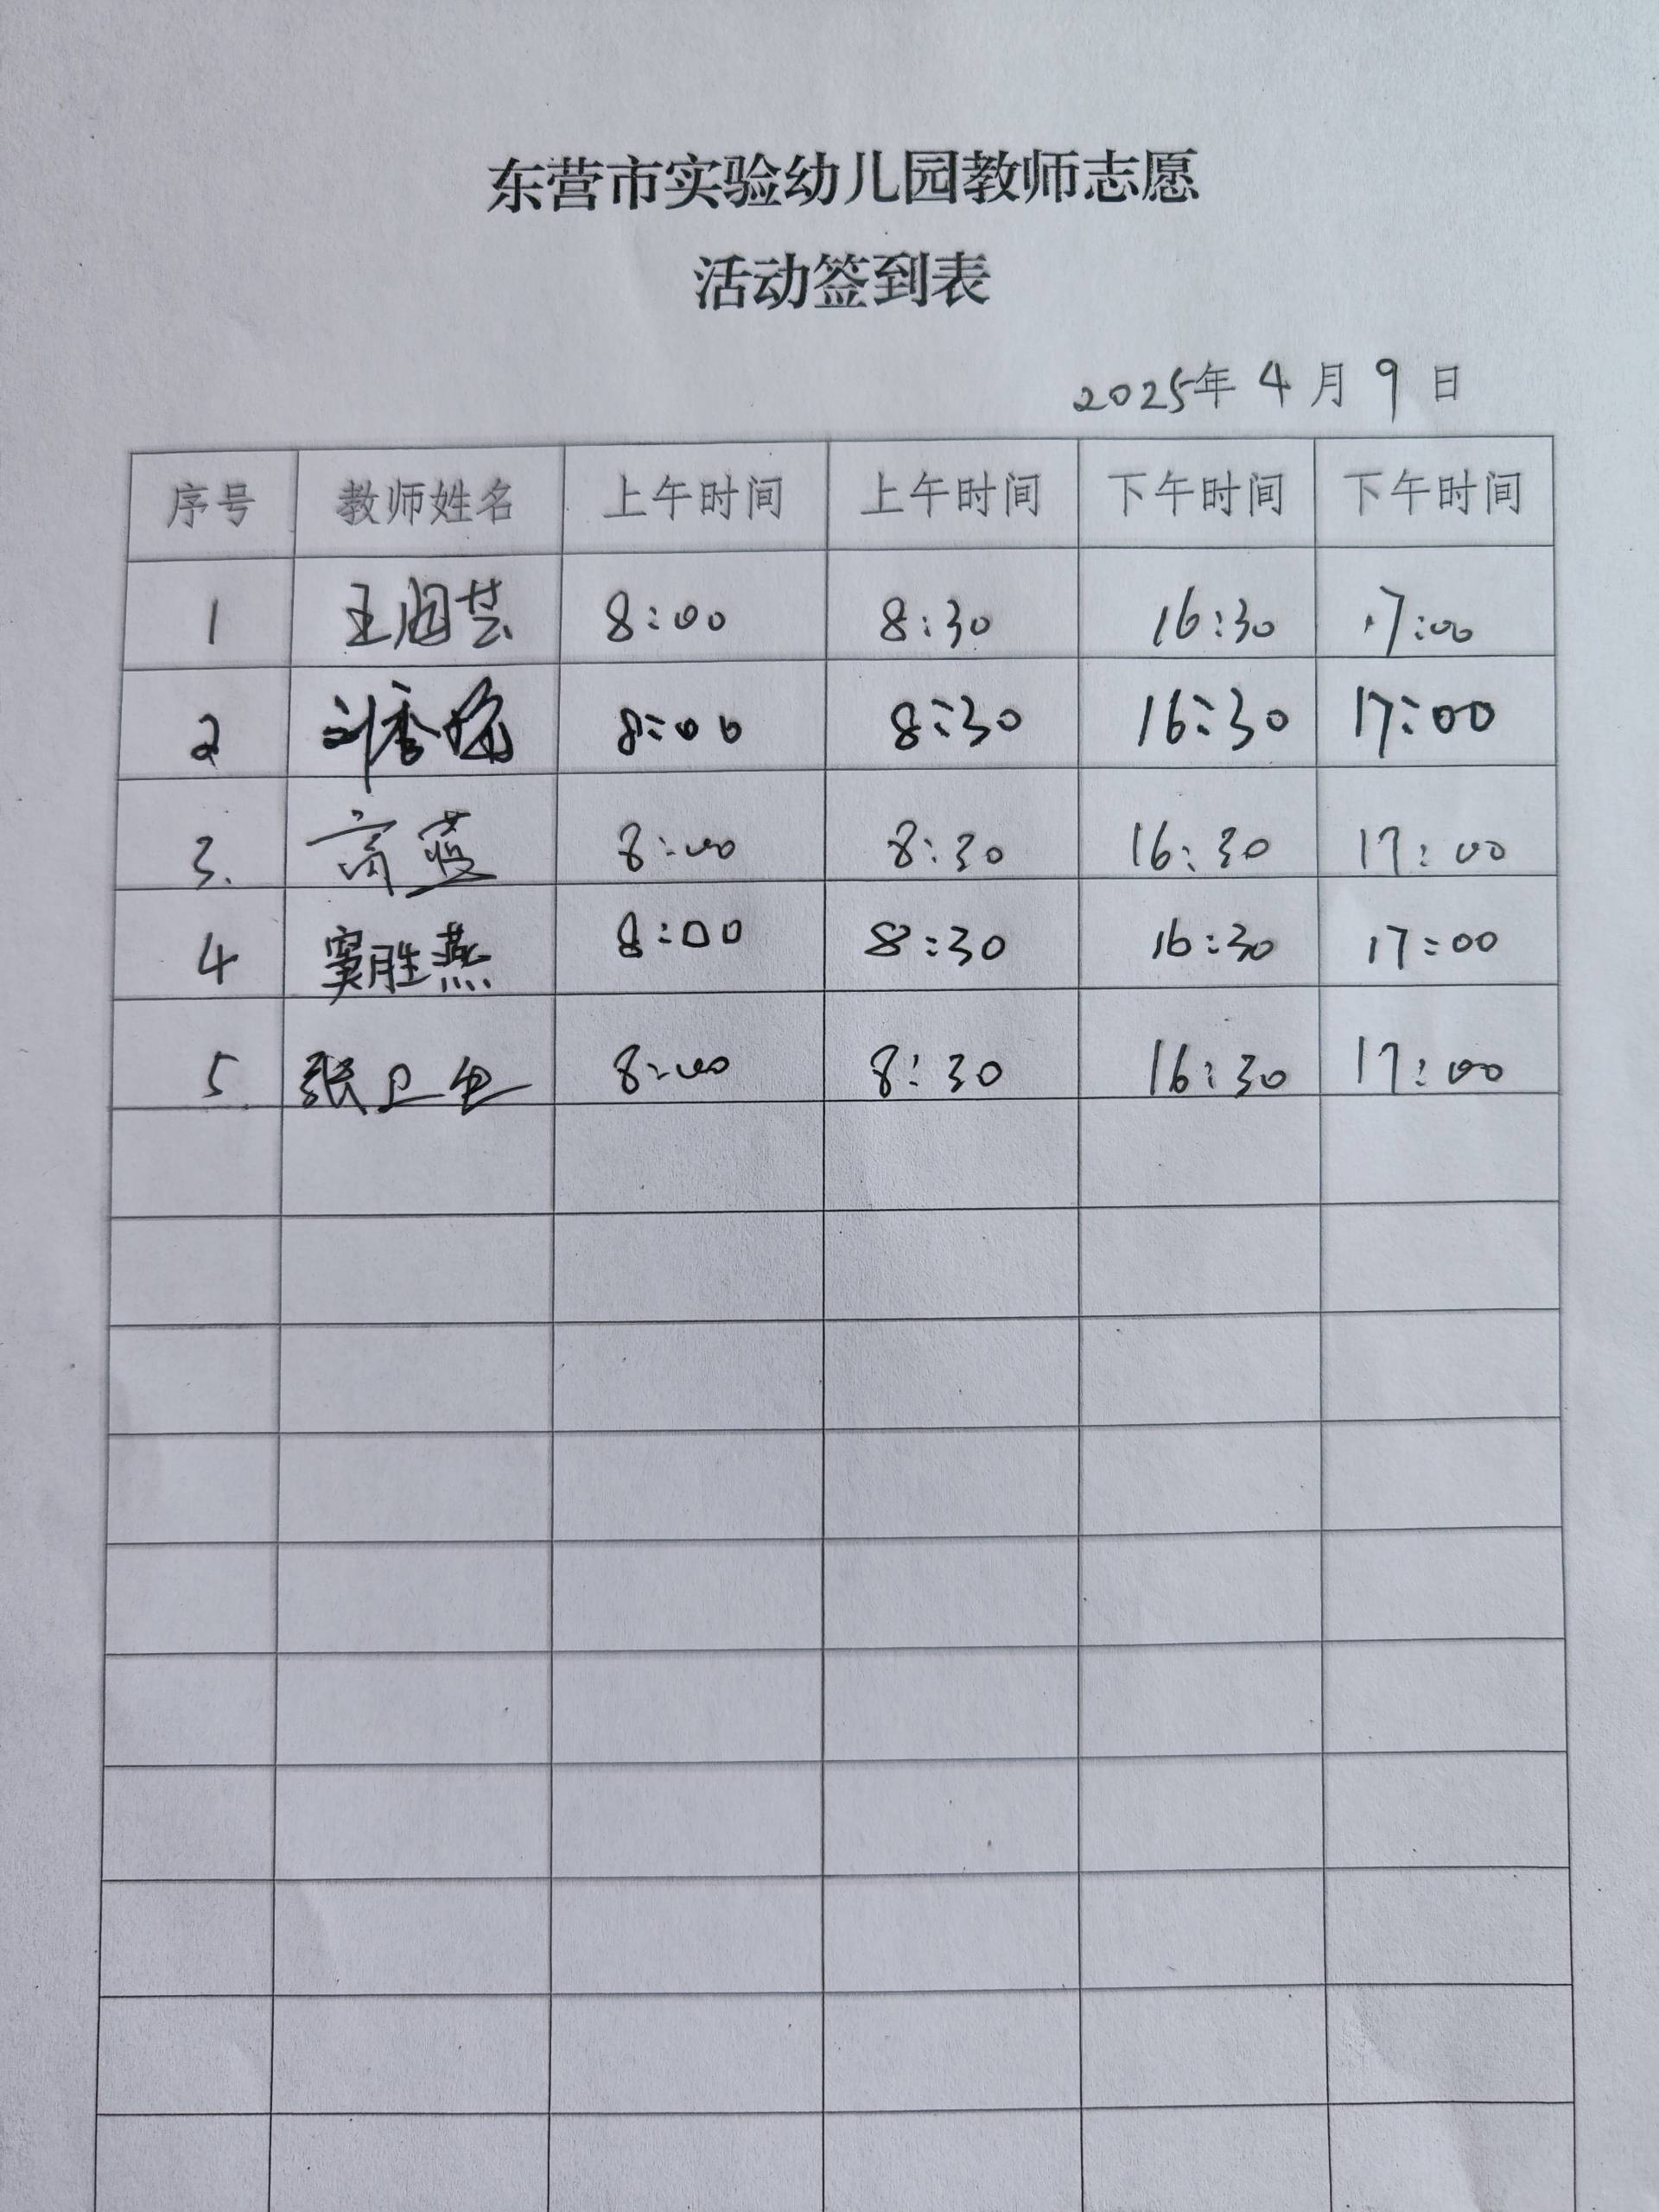 东营市实验幼儿园教师志愿
活动签到表
2025年 4 月 9 日
序号 教师姓名 上午时间 上午时间 下午时间 下午时间
1 王 芸 8:00 8:30 16:30 17:00
2 刘秀 8:00 8:30 16:30 17:00
3. 高蓝 8:00 8:30 16:30 17:00
4 窦胜燕 8:00 8:30 16:30 17:00
5. 张卫 8:00 8:30 16:30 17:00